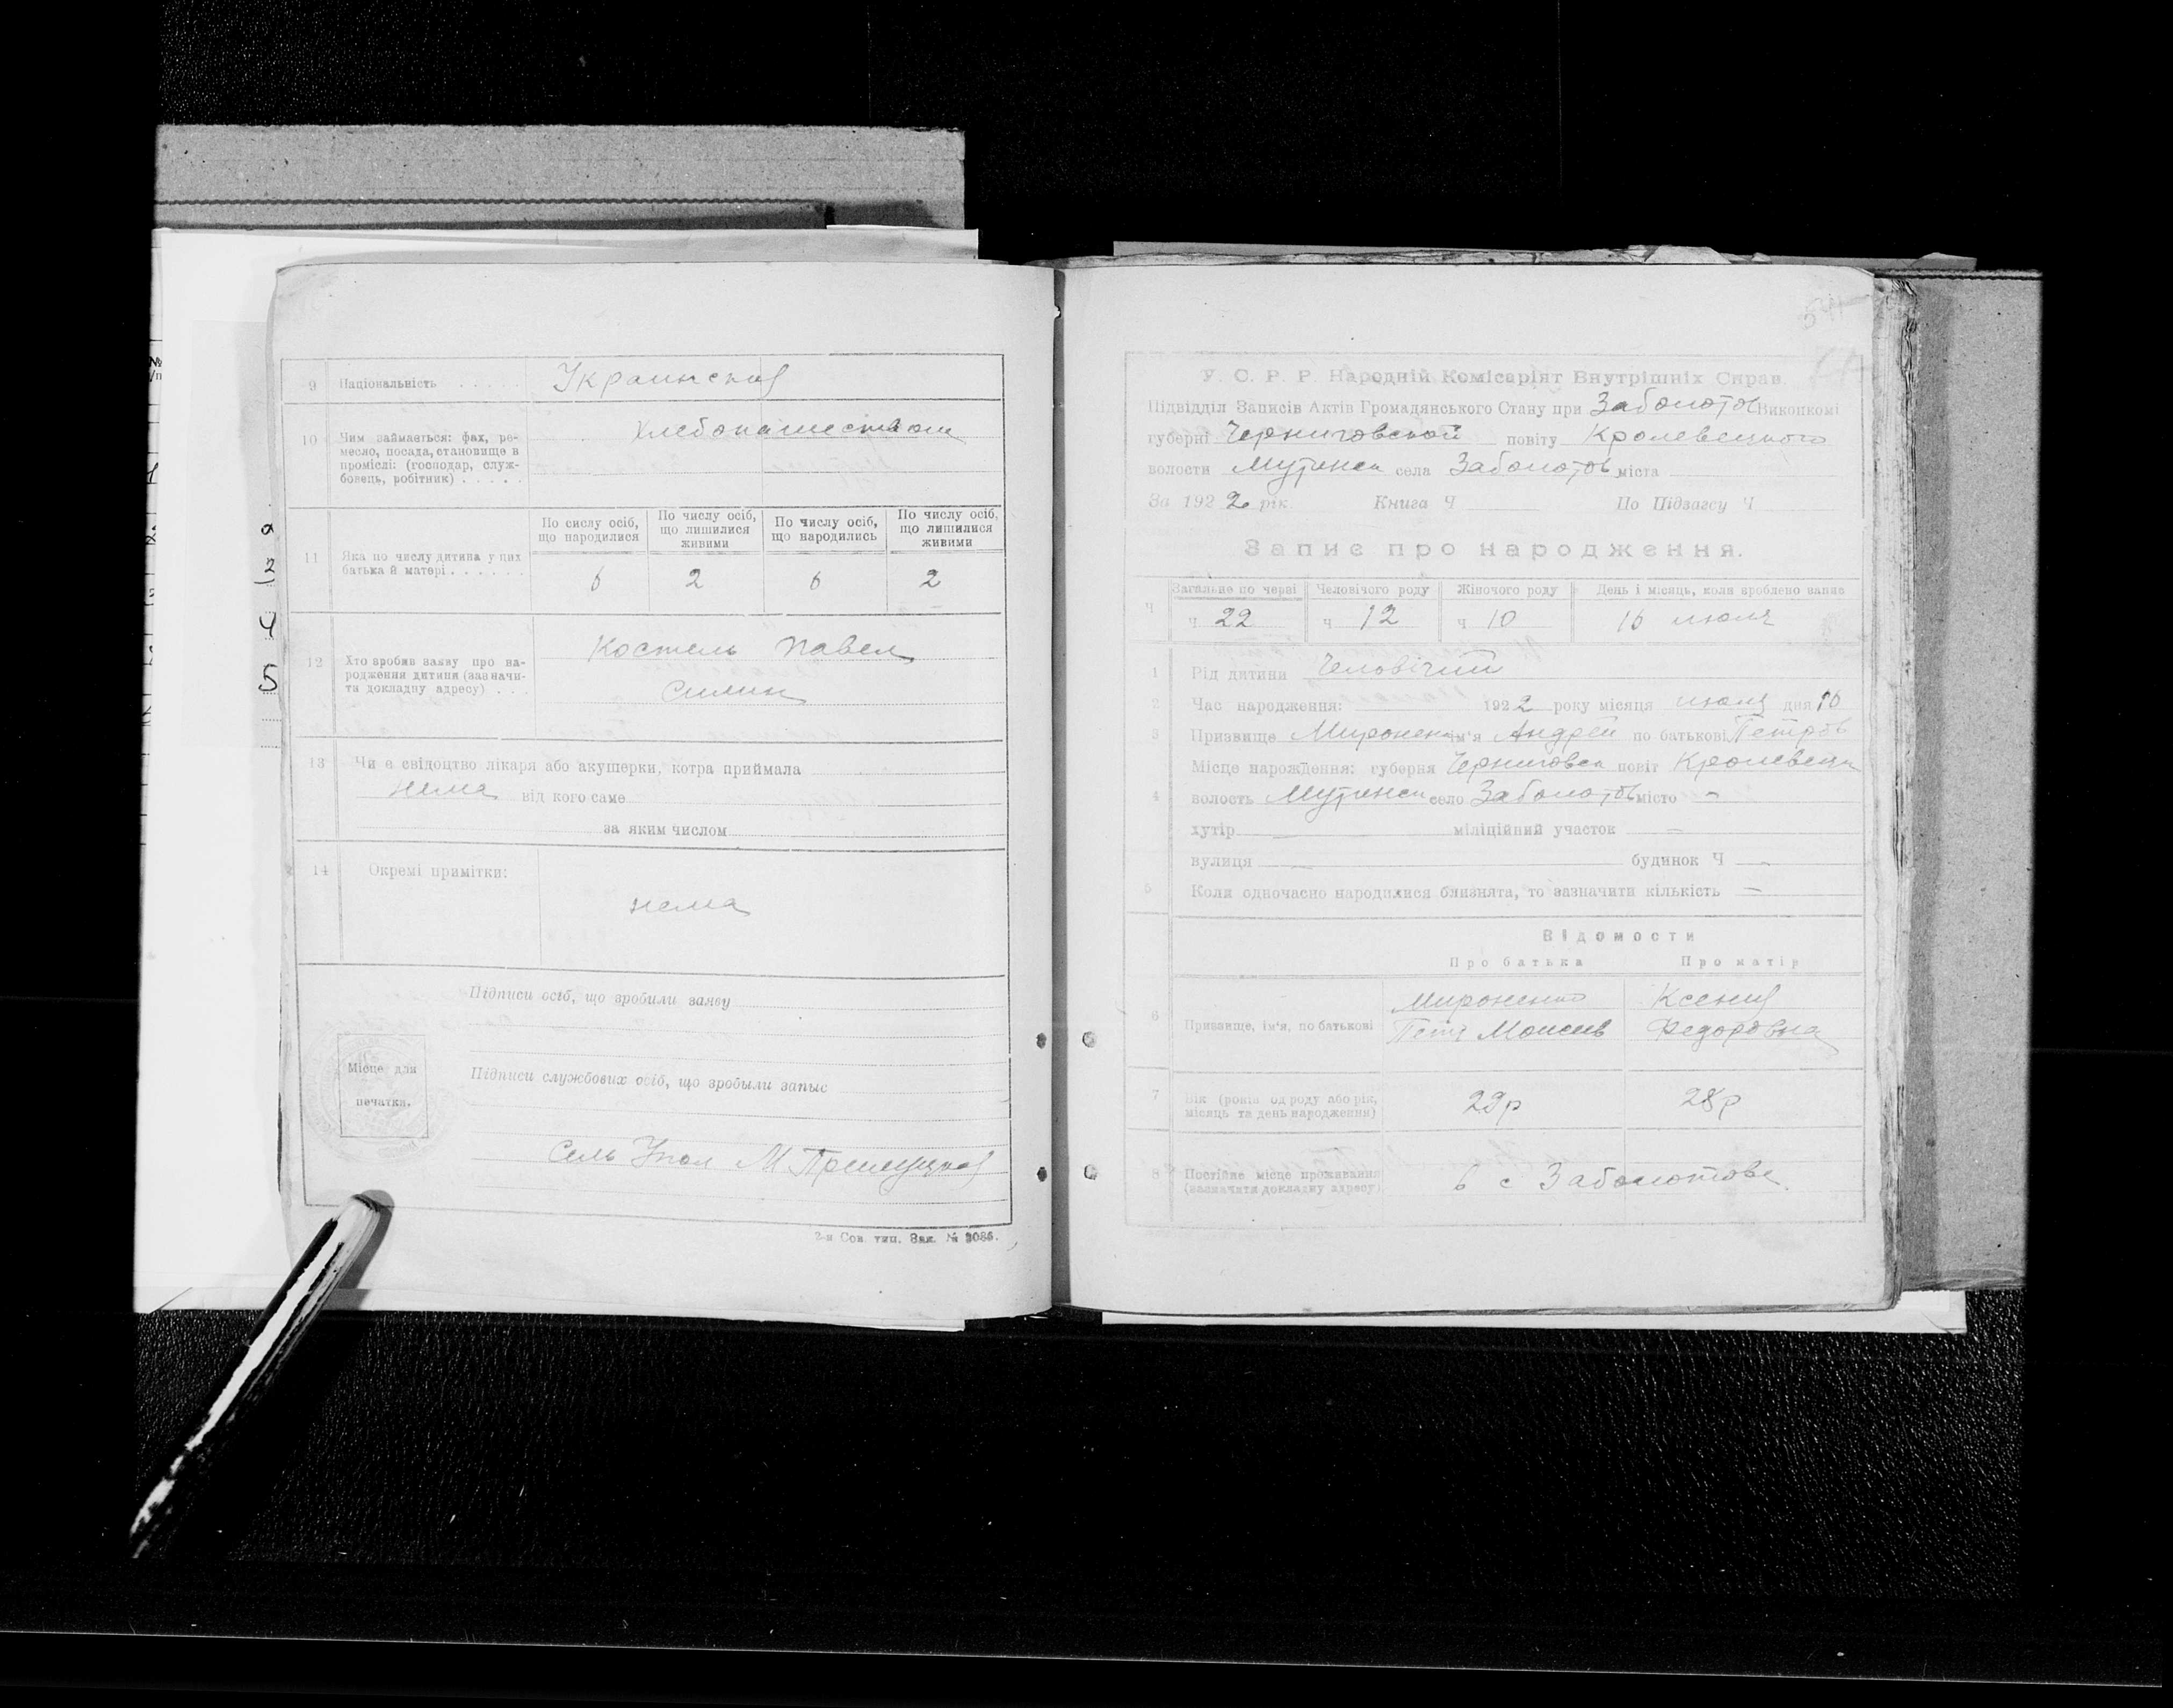 9 Національність Украинская
10 Чим займається: фах, ре-
месло, посада, становище в
промислі: (господар, служ-
бовець, робітник)
Хлебопашеством
11 Яка по числу дитина у цих
батька й матері
По сислу осіб,
що народилися
По числу осіб,
що лишилися
живими
По числу осіб,
що народились
По числу осіб,
що лишилися
живими
6 2 6 2
12 Хто зробив заяву про на-
родження дитини (зазначи-
ти докладну адресу)
Костель Павел
13 Чи є свідоцтво лікаря або акушерки, котра приймала
нема від кого саме
за яким числом
14 Окремі примітки:
нема
Підписи осіб, що зробили заяву
Місце для
печатки.
Підписи службових осіб, що зробыли запыс
Сель Упол М
2-я Сов. тип. Зак. №
У. С. Р. Р. Народній Комісаріят Внутрішніх Справ.
Підвідділ Записів Актів Громадянського Стану при Заболотов Виконкомі
губерні Черниговской повіту Кролевецкого
волости Мутинск села Заболотов міста
За 1922 рік Книга Ч По Підзагсу Ч
Запис про народження.
Ч
Загальне по черзі Человічого роду Жіночого роду День і місяць, коли зроблено запис
ч 22 ч 12 ч 10 16 июля
1 Рід дитини Человічий
2 Час народження: 1922 року місяця июля дня 16
3 Призвище Миронен ім'я Андрей по батькові Петров
4 Місце нарождення: губерня Черниговск повіт Кролевецк
волость Мутинск село Заболотов місто -
хутір — міліційний участок —
вулиця — будинок Ч -
5 Коли одночасно народилися близнята, то зазначити кількість —
Відомости
Про батька Про матір
6 Призвище, ім'я, по батькові
Мироненко Ксения
Петр Моисев Федоровна
7 Вік (років од роду або рік,
місяць та день народження)
29р 28р
8 Постійне місце проживання
(зазначити докладну адресу)
в с Заболотове